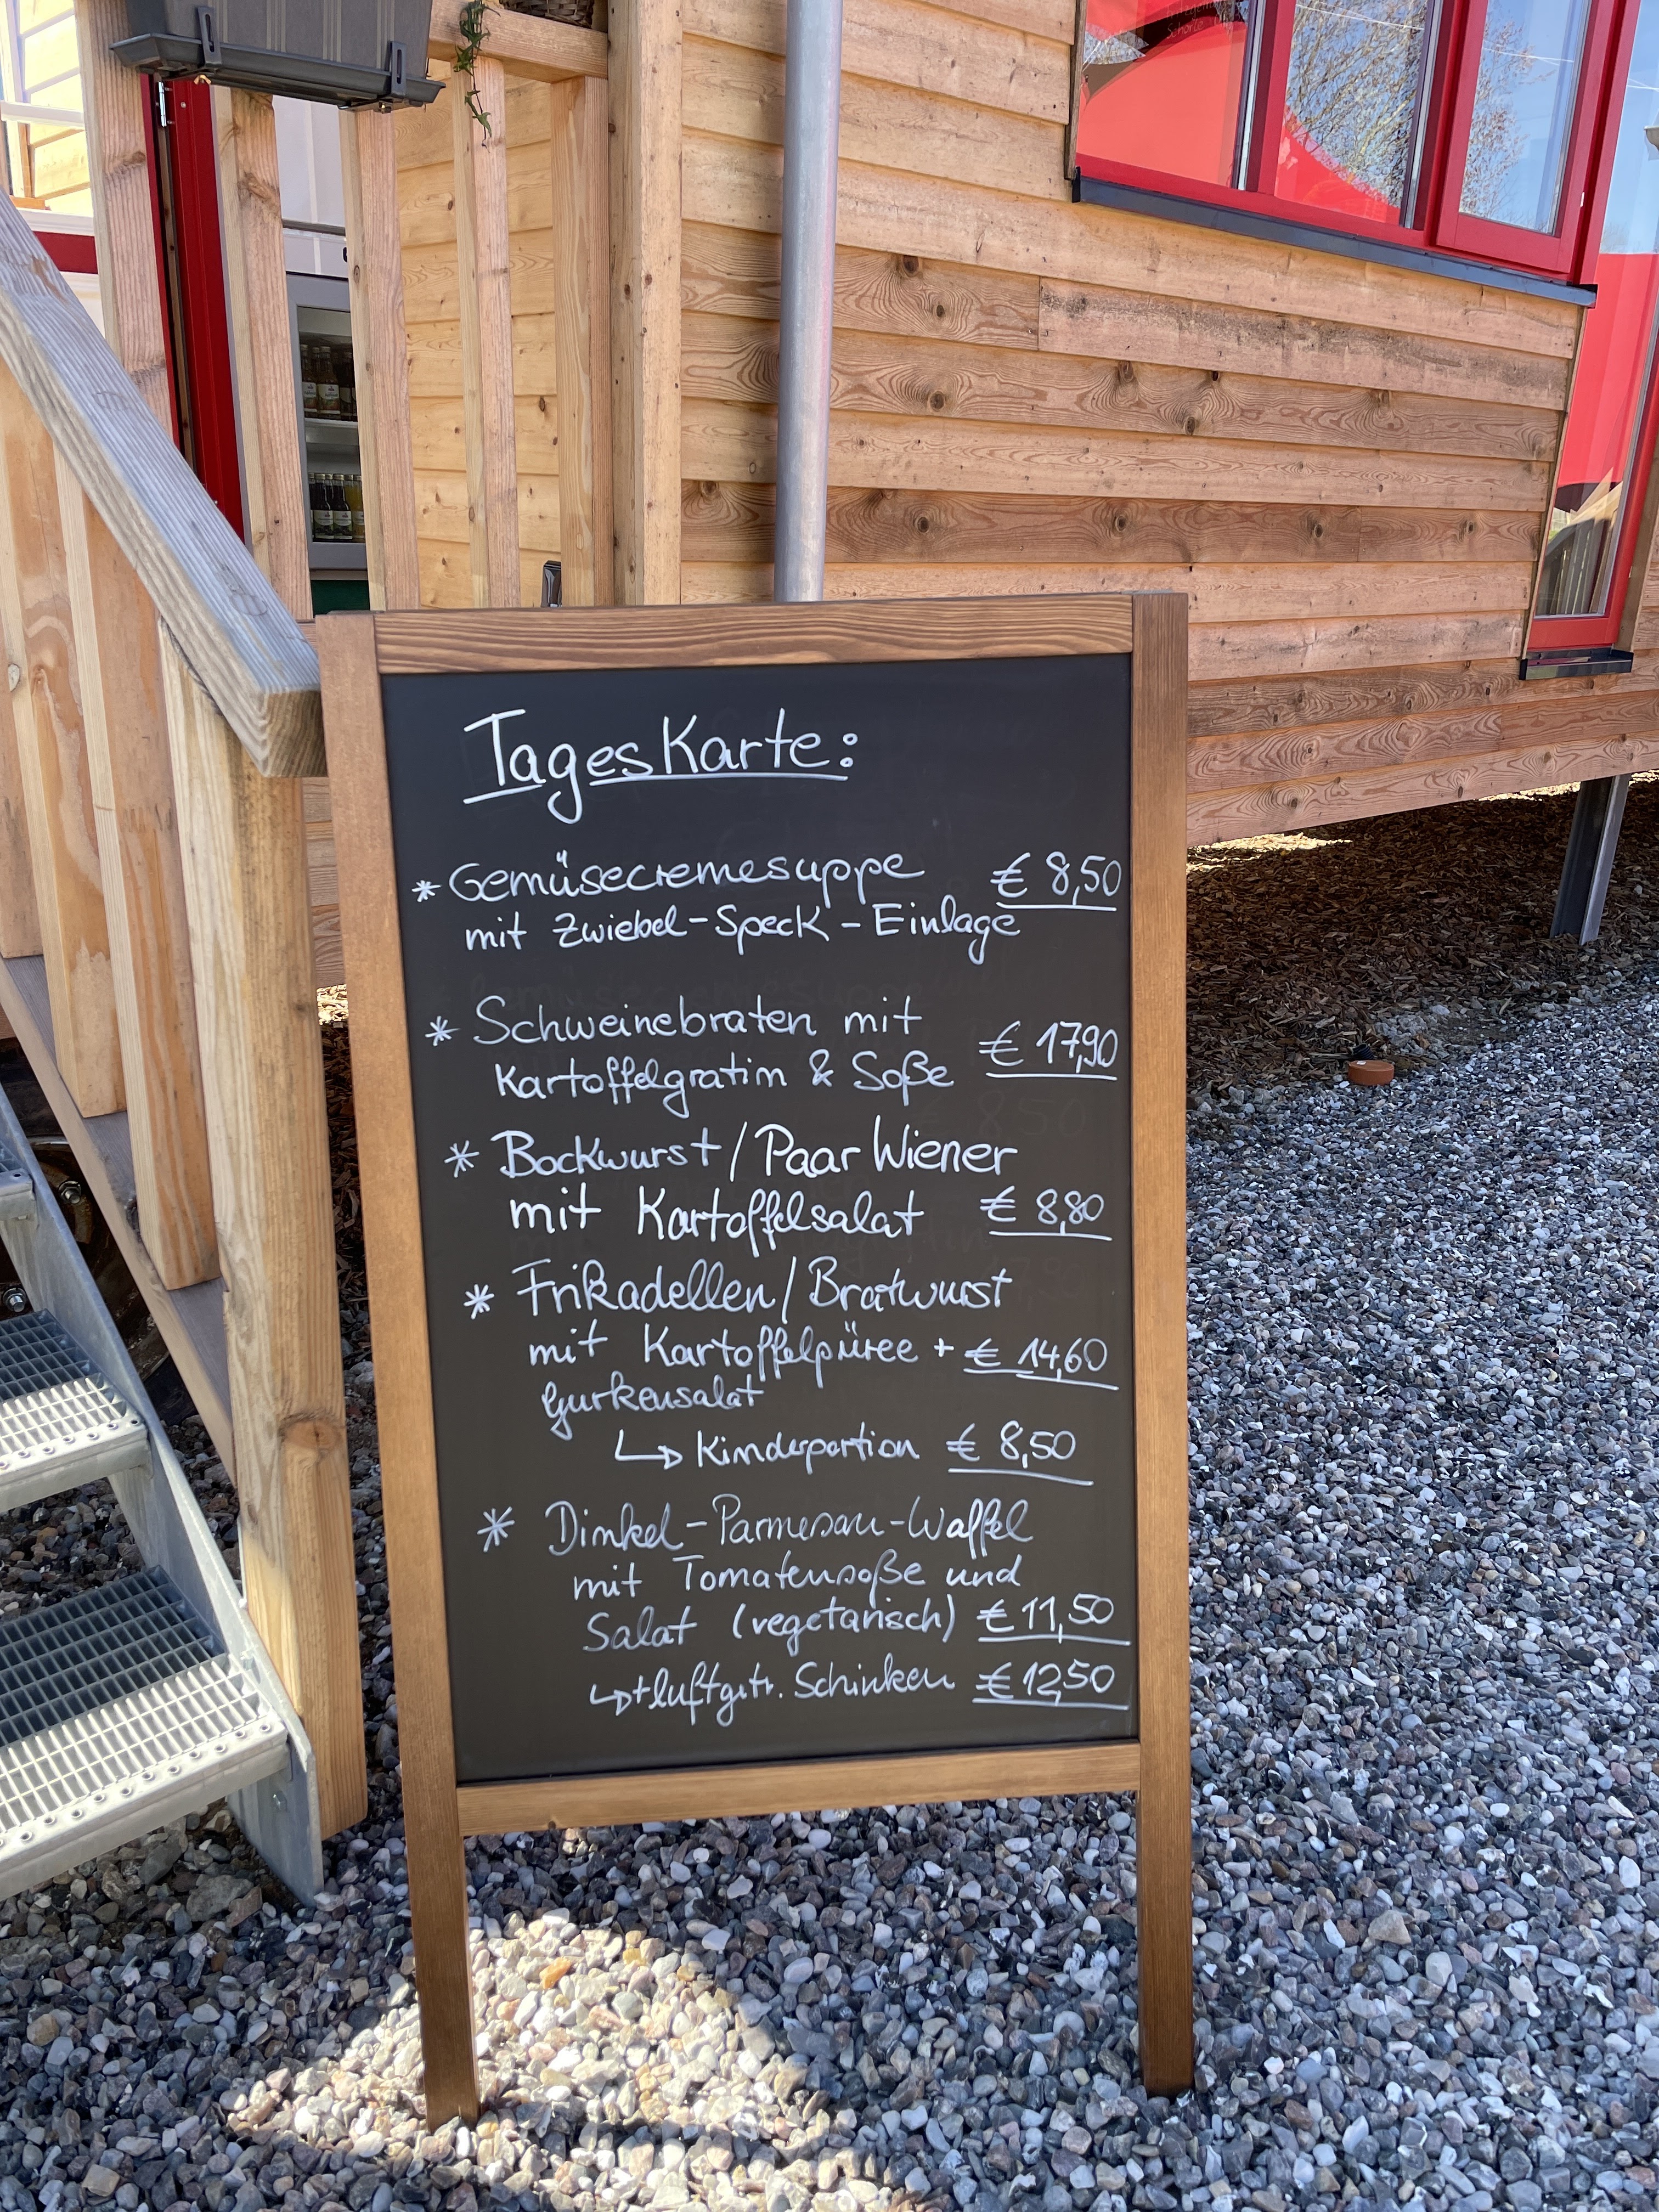 Tageskarte:
* Gemüsecremesuppe € 8,50
mit Zwiebel-Speck-Einlage
* Schweinebraten mit
Kartoffelgratin & Soße € 17,90
* Bockwurst/Paar Wiener
mit Kartoffelsalat € 8,80
* Frikadellen/Bratwurst
mit Kartoffelpüree + € 14,60
Gurkensalat
↳ Kinderportion € 8,50
* Dinkel-Parmesan-Waffel
mit Tomatensoße und
Salat (vegetarisch) € 11,50
↳ + luftgetr. Schinken € 12,50